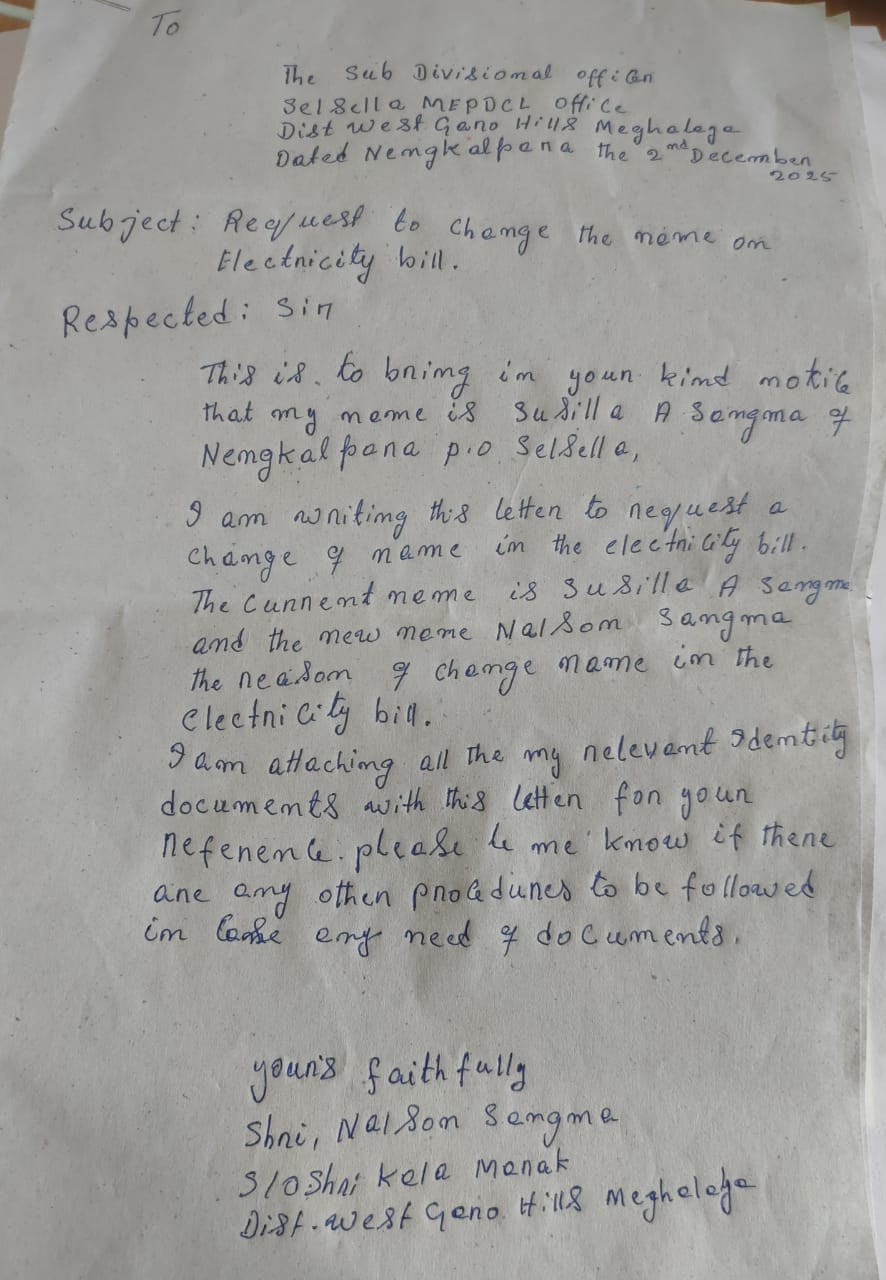 To
The Sub Divisional officer
Selsella MEPDCL office
Dist West Garo Hills Meghalaya
Dated Nengkalpara the 2nd December
2025
Subject: Request to change the name on
Electricity bill.
Respected: Sir
This is. to bring in your kind notice
that my name is Susilla A Sangma of
Nengkalpara p.o Selsella,
I am writing this letter to request a
change of name in the electricity bill.
The current name is Susilla A Sangma
and the new name Nalson Sangma
the reason of change name in the
electricity bill.
I am attaching all the my relevant Identity
documents with this letter for your
reference. please le me know if there
are any other procedures to be followed
in case any need of documents.
your's faithfully
Shri, Nalson Sangma
S/o Shri Kela Marak
Dist. West Garo Hills Meghalaya